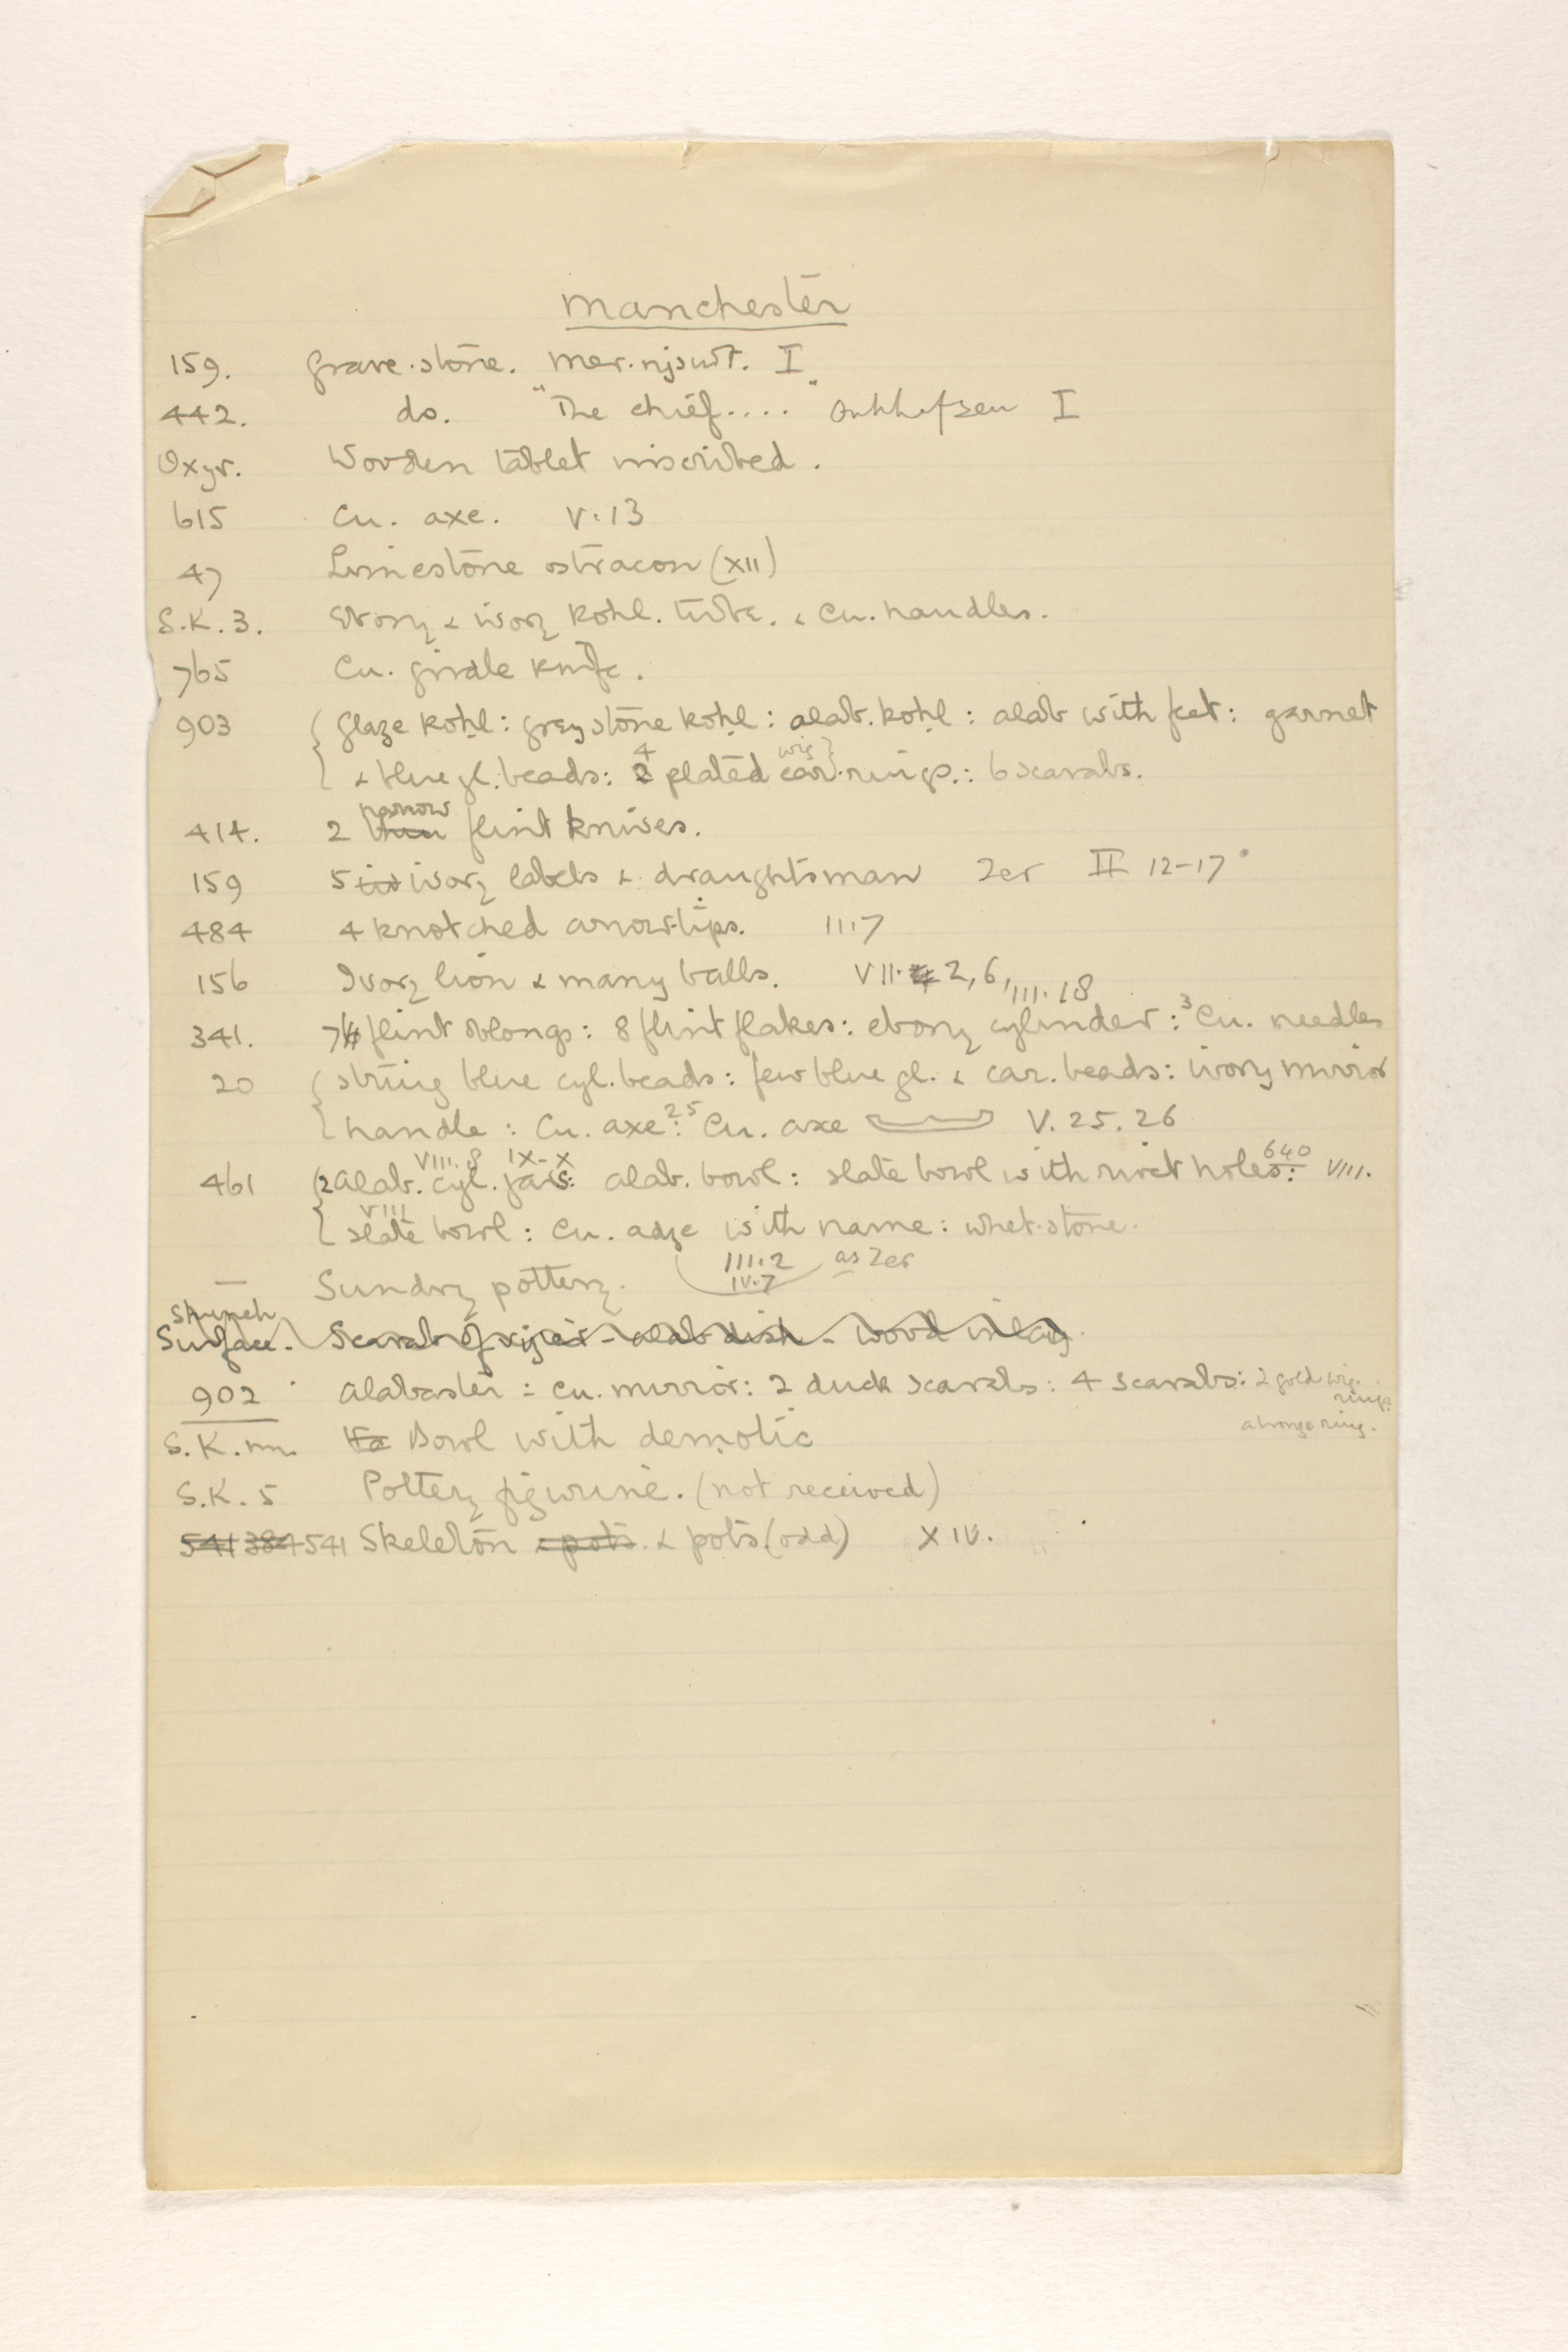 Manchester
159. Grave.stone. Mer.njswt. I
442. do. "The chief...." Ankhefsen I
Oxyr. Wooden tablet inscribed.
615 Cu. axe. V.13
47 Limestone ostracon (XII)
S.K.3. Ebony & ivory kohl. tube. & Cu. handles.
765 Cu. girdle knife.
903 Glaze kohl: grey stone kohl: alab. kohl: alab with feet: garnet
& blue gl. beads: 4 plated ear wig rings.: 6 scarabs.
414. 2 thin narrow flint knives.
159 5 ivory labels & draughtsman Zer II 12-17
484 4 knotched arrow-tips. 11.7
156 Ivory lion & many balls. VII. 2, 6, III. 18
341. 7 flint oblongs: 8 flint flakes: ebony cylinder: 3 Cu. needles
20 string blue cyl. beads: few blue gl. & car. beads: ivory mirror
handle: Cu. axe: 25 Cu. axe V. 25. 26
VIII. 8 IX-X 640
461 2 alab. cyl. jars: alab. bowl: slate bowl with rivet holes: VIII.
VIII
slate bowl: Cu. adze with name: whet.stone.
III.2 as Zer
IV.7
— Sundry pottery.
Surface. Scarab of - alab dish - wood inlay.
902 Alabaster: Cu. mirror: 2 duck scarabs: 4 scarabs: 2 gold wig. rings.
a bronze ring.
S.K. Bowl with demotic
S.K. 5 Pottery figurine. (not received)
541 384 541 Skeleton & pots. & pots (odd) XIV.